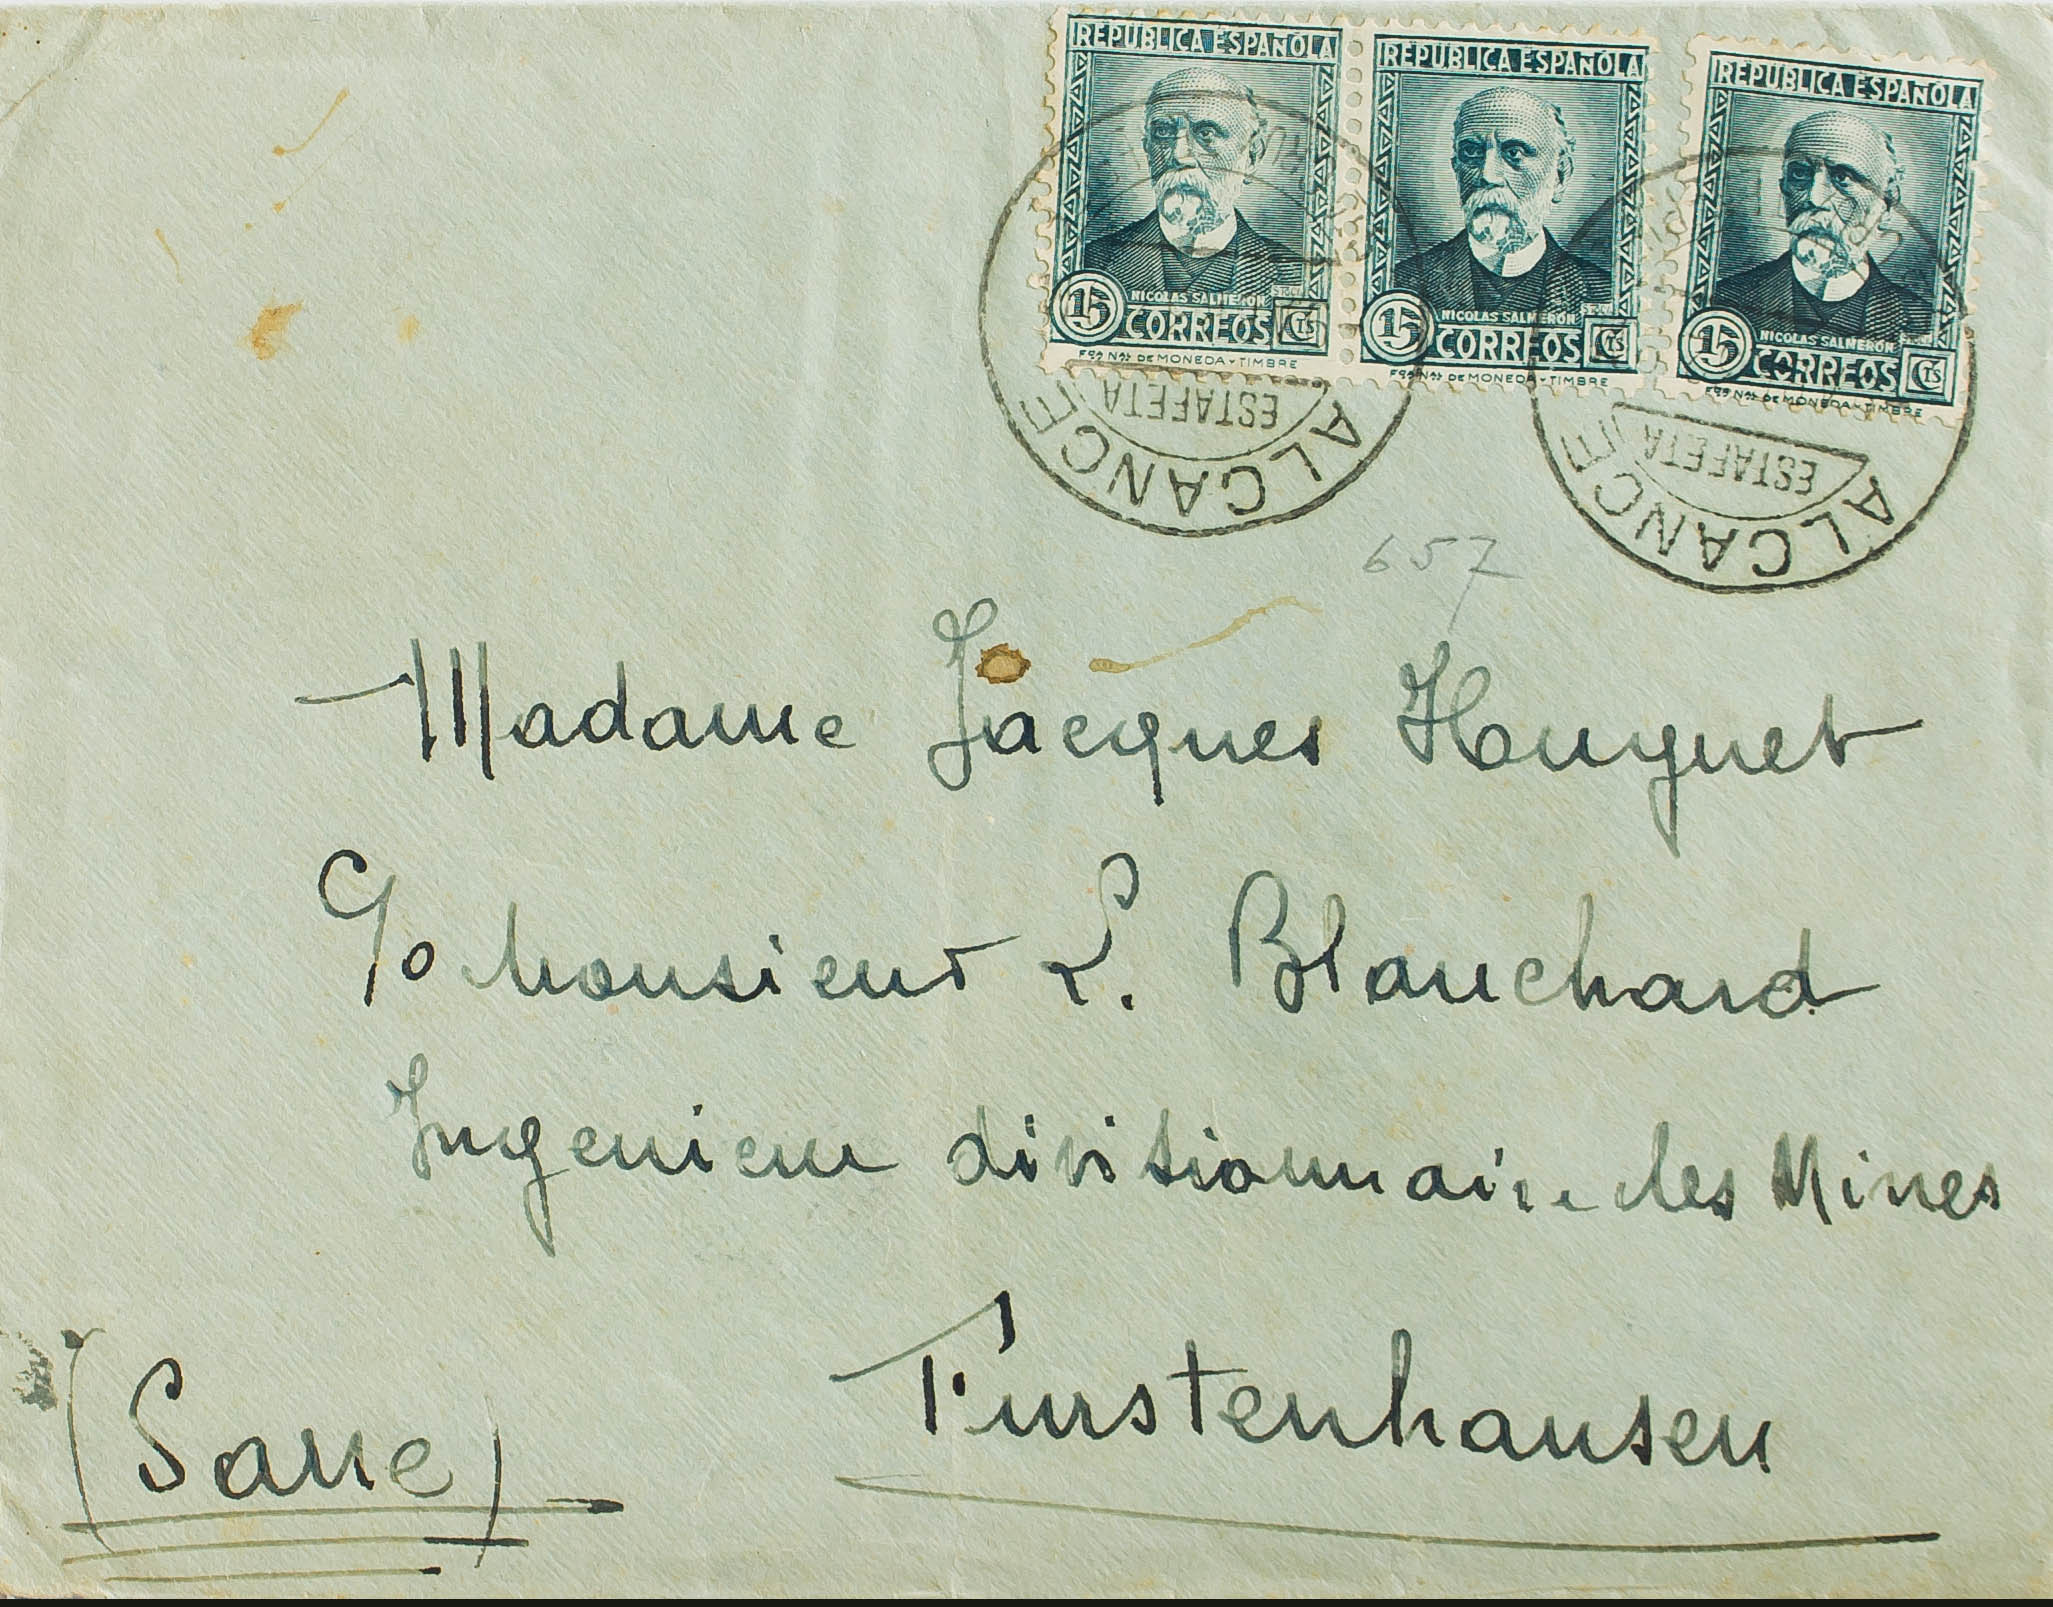 REPUBLICA ESPAÑOLA
NICOLAS SALMERON
15 CORREOS CTS
Fca Nal DE MONEDA Y TIMBRE
REPUBLICA ESPAÑOLA
NICOLAS SALMERON
15 CORREOS CTS
Fca Nal DE MONEDA Y TIMBRE
REPUBLICA ESPAÑOLA
NICOLAS SALMERON
15 CORREOS CTS
Fca Nal DE MONEDA Y TIMBRE
ESTAFETA
ALCANCE
ESTAFETA
ALCANCE
657
Madame Jacques Huguet
C/o Monsieur L. Blanchard
Ingenieur divisionnaire des Mines
Furstenhausen
(Sarre)